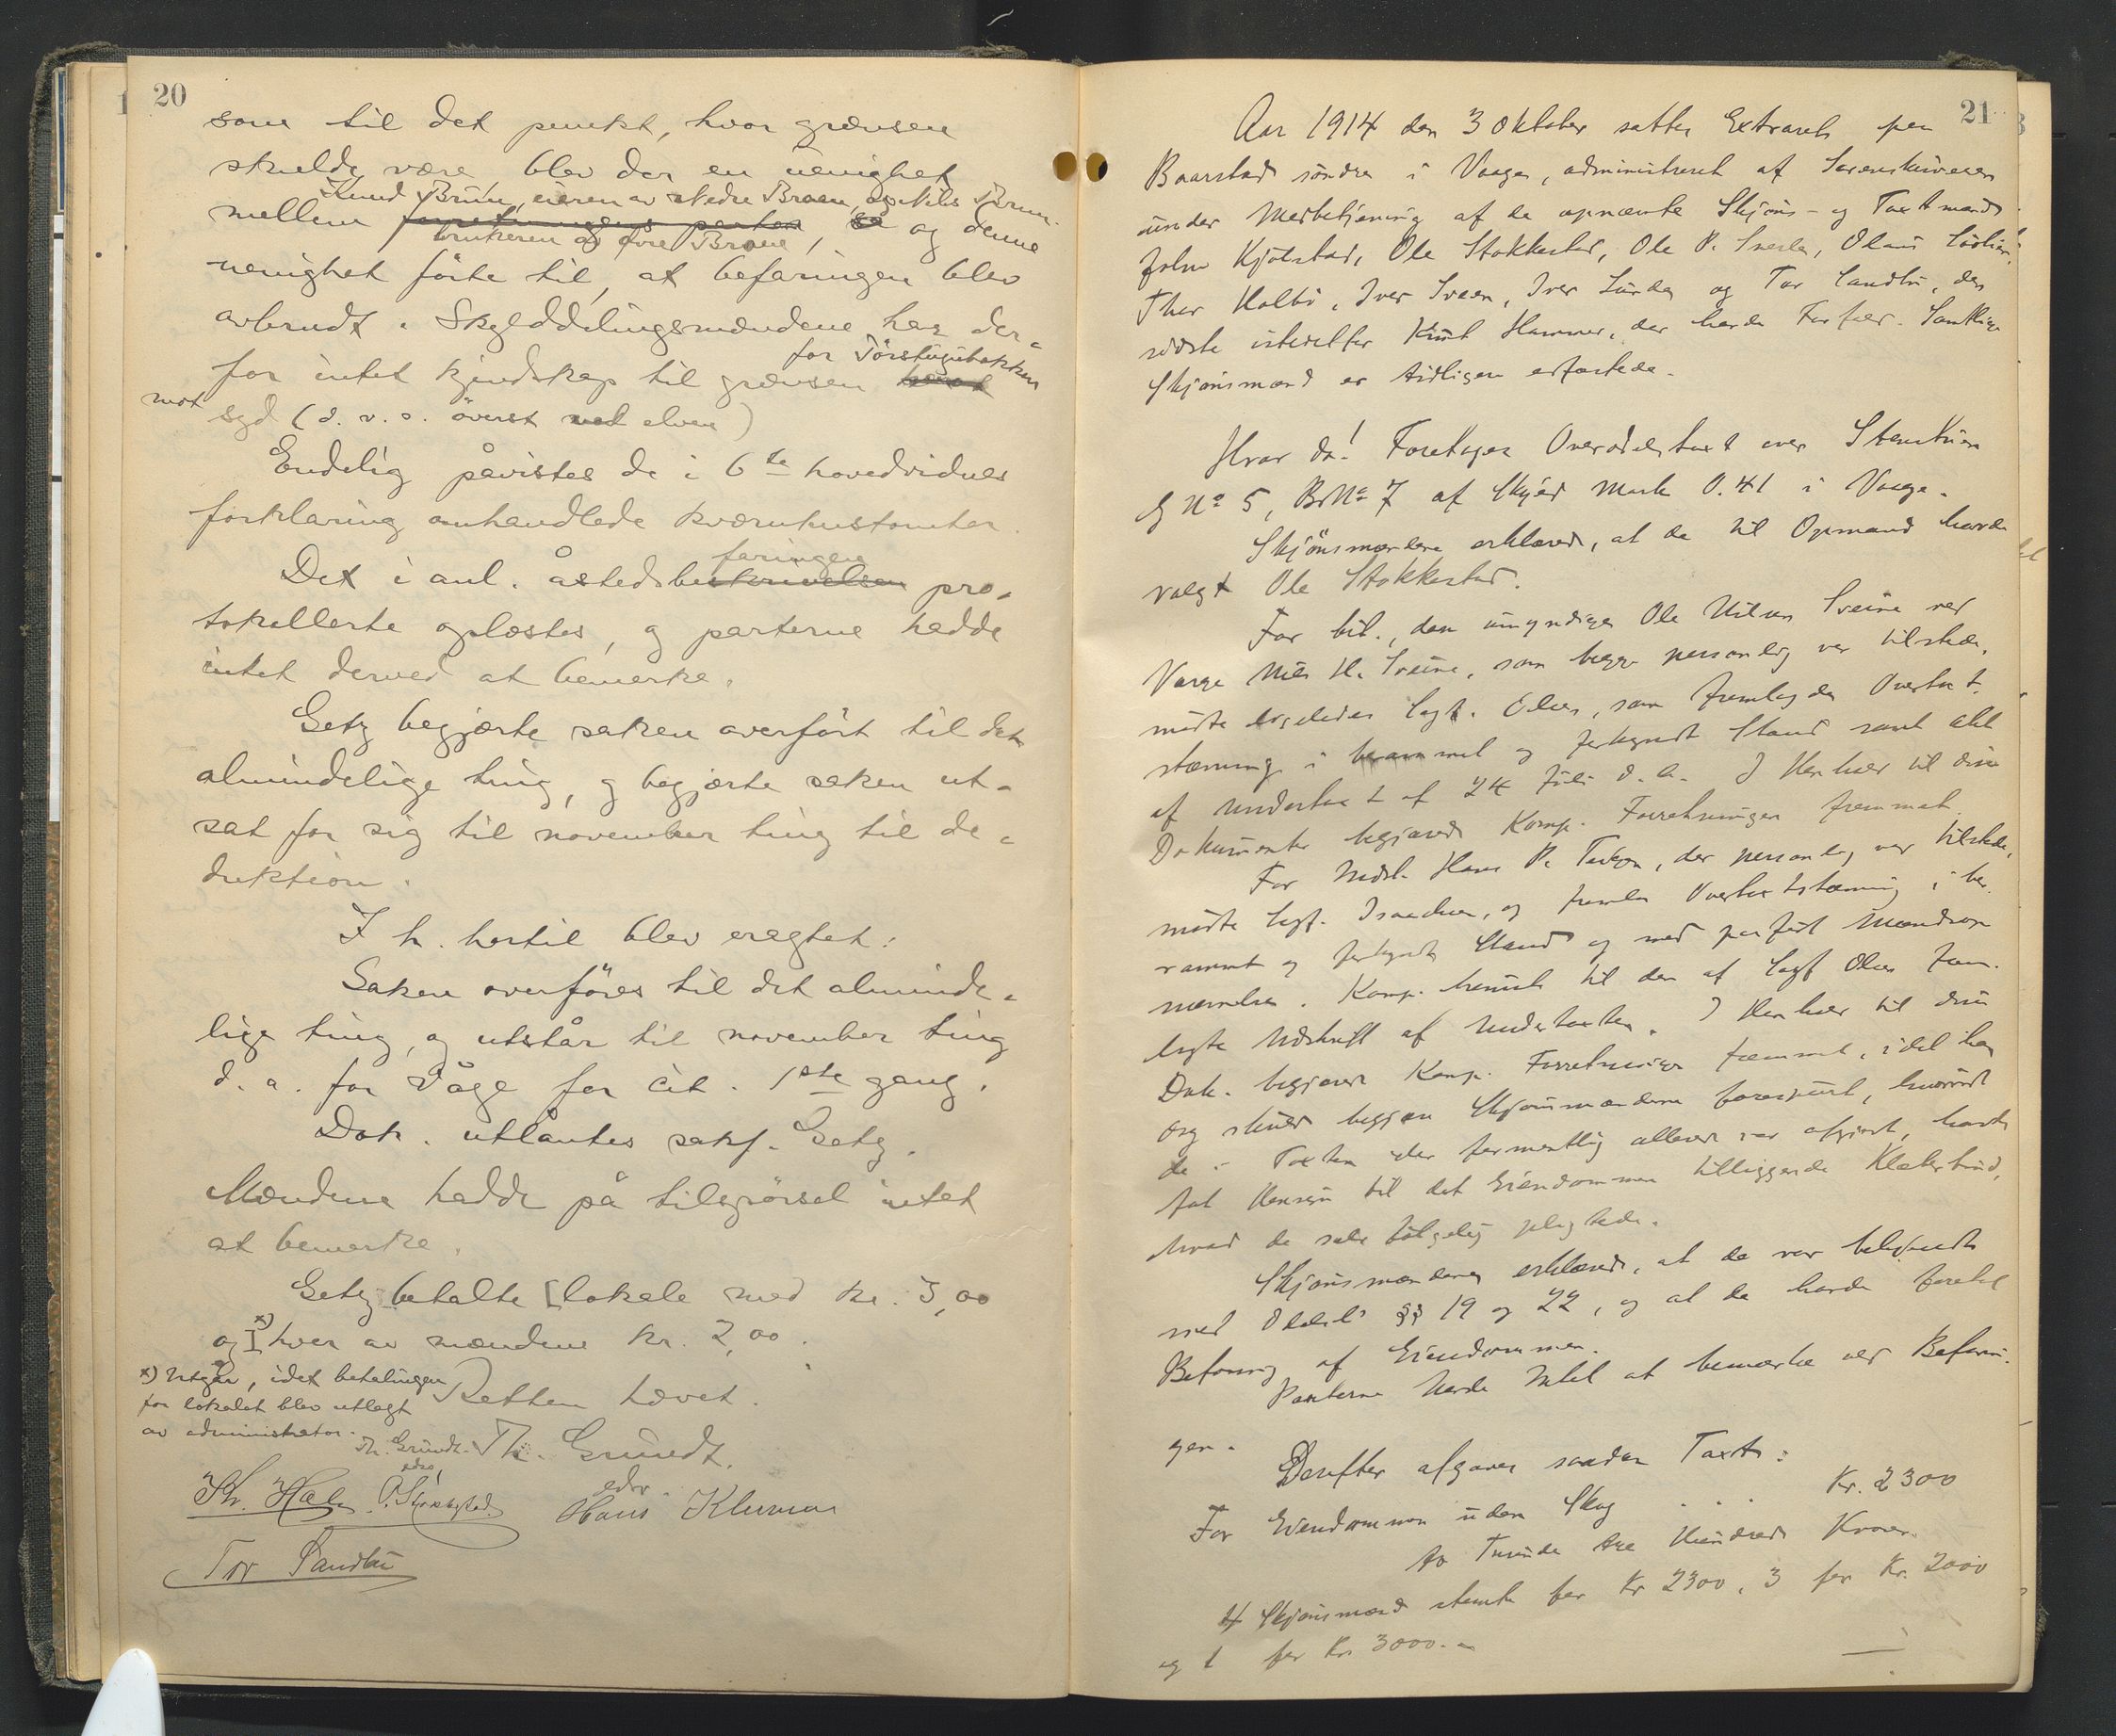 20
som til det punkt, hvor grænsen
skulde være blev der en uenighet
Knud Bruun, eieren av Nedre Braen, og Nils Bruun
mellem forretningens parter, og denne
brukeren av øvre Braae,
uenighet førte til, at befaringen blev
avbrudt. Skylddelingsmændene har der-
for Tørstuguhokken
for intet kjendskap til grænsen
mot syd (d. v. s. øverst ved elven)
Endelig påvistes de i 6te hovedvidnes
forklaring omhandlede kværnhustomter.
faringen
Det i anl. åstedsbeskrivelsen pro-
tokollerte oplæstes, og parterne hadde
intet derved at bemerke.
Getz begjærte saken overført til det
almindelige ting, og begjærte saken ut-
sat for sig til november ting til de-
duktion.
I h. hertil blev eragtet:
Saken overføres til det alminde-
lige ting, og utstår til november ting
d. a. for Våge for cit. 1ste gang.
Dok. utlåntes sakf. Getz.
Mændene hadde på tilspørsel intet
at bemerke.
Getz betalte [lokale med kr. 3,00
og] x) hver av mændene kr. 2,00.
x) Utgår, idet betalingen
for lokalet blev utlagt
av administrator.
Th. Grundt.
Retten hævet.
Th. Grundt.
edsv.
edsv.
Hans Klurum
Tor Sandbu
21
Aar 1914 den 3 Oktober sattes Extraret paa
Baarstad søndre i Vaage, administreret af Sorenskriveren
under Medbetjening af de opnævnte Skjøns- og Taxtmænd
John Kjølstad, Ole Stokkestad, Ole P. Sveile,
Thor Holbø, Iver Sveen, Iver Lunde og Tor Sandbu, den
sidste istedetfor Knut Hammer, der havde Forfald. Samtlige
Skjønsmænd er tidligere edfæstede.
Hvor da! Foretages Overodelstaxt over
G No 5, BrNo 7 af Skyld Mark 0.41 i Vaage.
Skjønsmændene erklærede, at de til Opmand havde
valgt Ole Stokkestad.
For cit., den umyndige Ole Nilsen Sveine ved
Værge Nils H. Sveine, som begge personlig var tilstede,
mødte ligeledes Sagf. Olsen, som fremlagde Overtaxt-
stævning i berammet og forkyndt Stand samt Akt
af Undertaxt af 24 Juli d. A. I Henhold til disse
Dokumenter begjærede Komp. Forretningen fremmet.
For Indst. Hans P., der personlig var tilstede,
mødte Sagf. Isaachsen, og fremla Overtaxtstævning i be-
rammet og forkyndt Stand og med paaført Mandsop-
nævnelse. Komp. henviste til den af Sagf Olsen frem-
lagte Udskrift af Undertaxten. I Henhold til disse
Dok. begjærede Komp. Forretningen fremmet, idet han
og skulde begjære Skjønsmændene forespurt, hvorvidt
de i Taxten, der formentlig allerede var afgjort, havde
tat Hensyn til det Eiendommen tilliggende Kleberbrud,
hvad de selvfølgelig pligtede.
Skjønsmændene erklærede, at de var bekjendt
med Odelsl. §§ 19 og 22, og at de havde foretat
Befaring af Eiendommen.
Parterne havde Intet at bemærke ved Befarin-
gen.
Derefter afgaves saadan Taxt:
For Eiendommen uden Skog . . . Kr. 2300
to Tusinde tre Hundrede Kroner
4 Skjønsmænd stemte for Kr 2300, 3 for Kr. 2000
og 1 for Kr. 3000.-